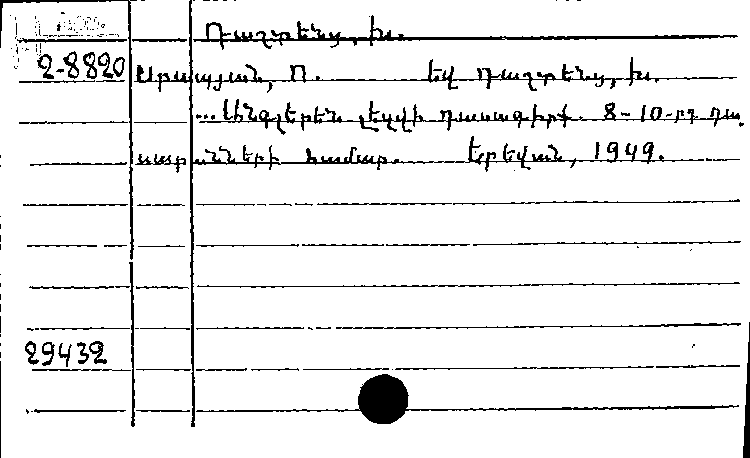 Դաշտենց, Խ.
2-8820 Աբրայան, Ո. եվ Դաշտենց, Խ.
...Անգլերեն լեզվի դասագիրք. 8-10-րդ դա
սարանների համար. Երեվան, 1949.
29432